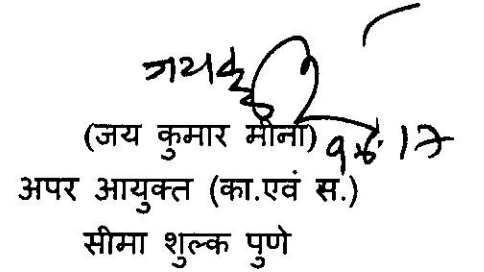 जयकु
(जय कुमार मीना)
अपर आयुक्त (का.एवं स.)
सीमा शुल्क पुणे